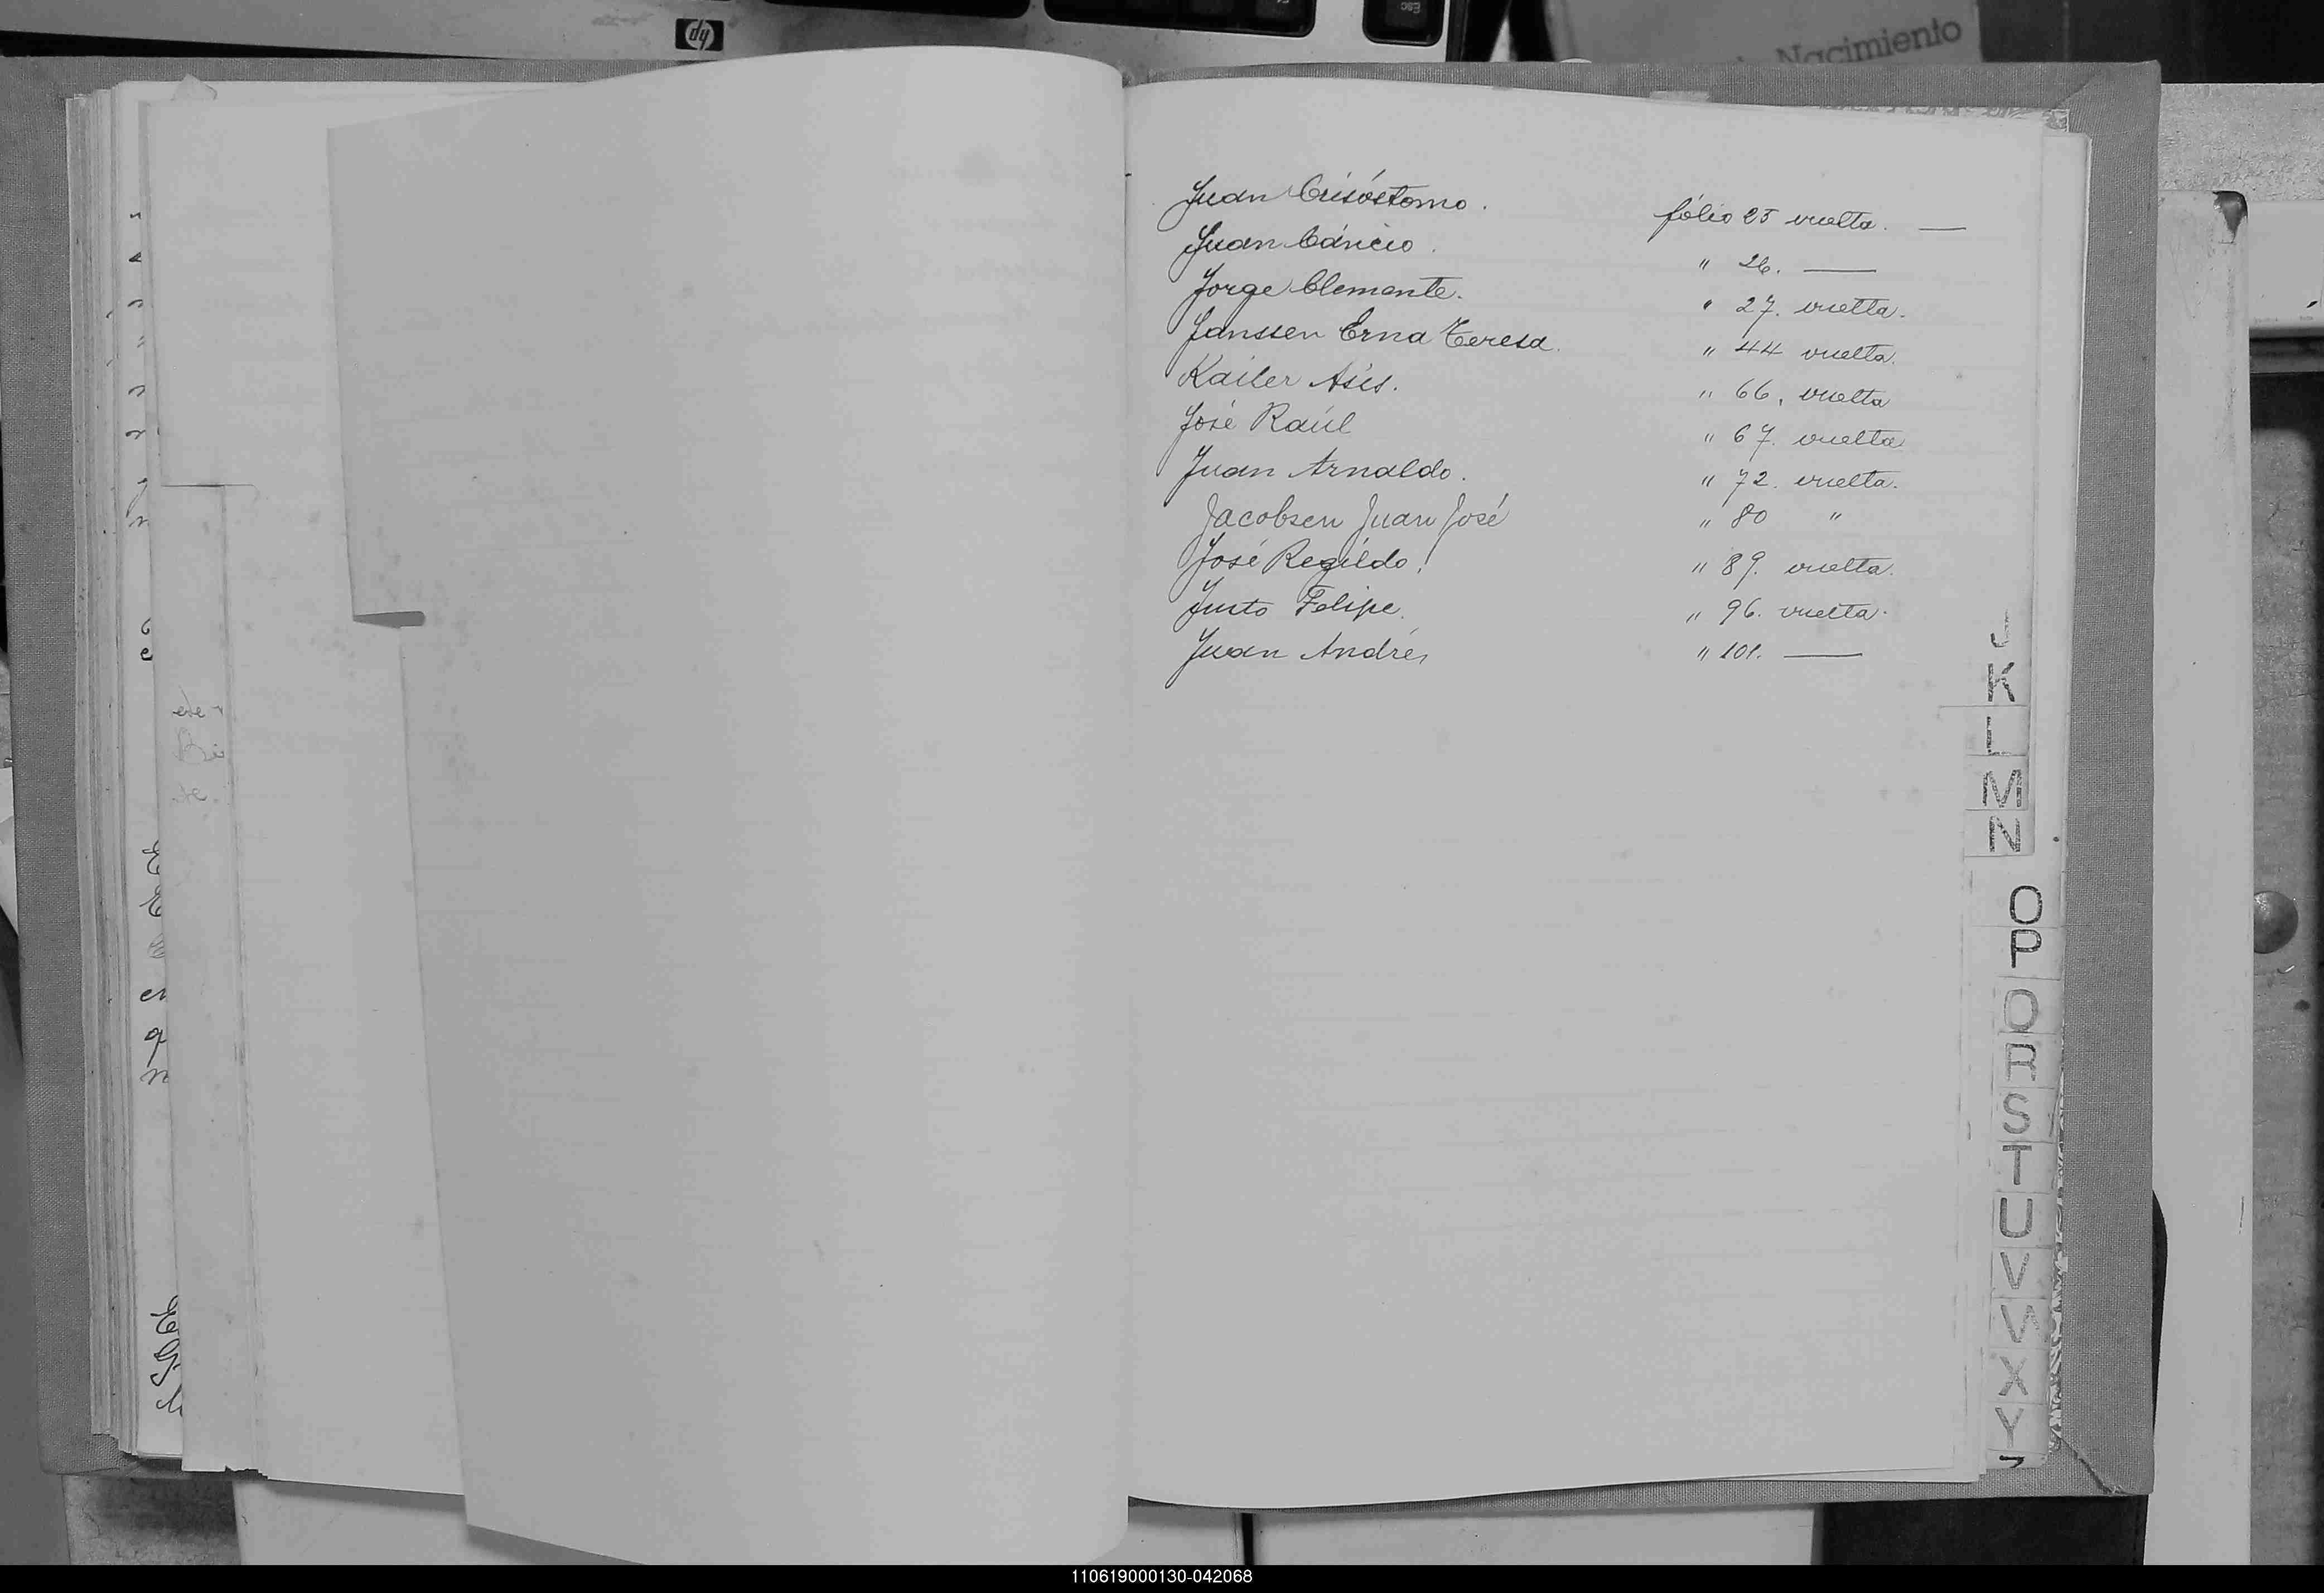 Esc
hp
Nacimiento
Juan Crisóstomo. fólio 25 vuelta. —
Juan Cáncio. " 26. —
Jorge Clemente. " 27. vuelta.
Janssen Erna Teresa. " 44 vuelta.
Kailer Asis. " 66. vuelta
José Raúl " 67. vuelta
Juan Arnaldo. " 72. vuelta.
Jacobsen Juan José " 80 "
José Regildo. " 89. vuelta.
Justo Felipe. " 96. vuelta.
Juan Andrés " 101. —
J
K
L
M
N
O
P
Q
R
S
T
U
V
W
X
Y
110619000130-042068